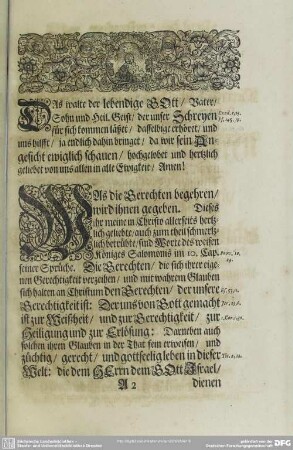 DAs walte der lebendige GOtt / Vater /
Sohn und Heil. Geist / der unser Schreyen
für sich kommen läßet / dasselbige erhöret / und
uns hilfft / ja endlich dahin bringet / da wir sein An-
gesicht ewiglich schauen / hochgelobet und hertzlich
geliebet von uns allen in alle Ewigkeit / Amen!
WAs die Gerechten begehren /
wird ihnen gegeben. Dieses
ihr meine in Christo allerseits hertz-
lich geliebte / auch zum theil schmertz-
lich betrübte / sind Worte des weisen
Königes Salomonis im 10. Cap.
seiner Sprüche. Die Gerechten / die sich ihrer eige-
nen Gerechtigkeit verzeihen / und mit wahrem Glauben
sich halten an Christum den Gerechten / der unsere
Gerechtigkeit ist: Der uns von Gott gemacht
ist zur Weißheit / und zur Gerechtigkeit / zur
Heiligung und zur Erlösung: Darneben auch
solchen ihren Glauben in der That fein erweisen / und
züchtig / gerecht / und gottseelig leben in dieser
Welt: die dem HErrn dem GOtt Israel /
A 2 dienen